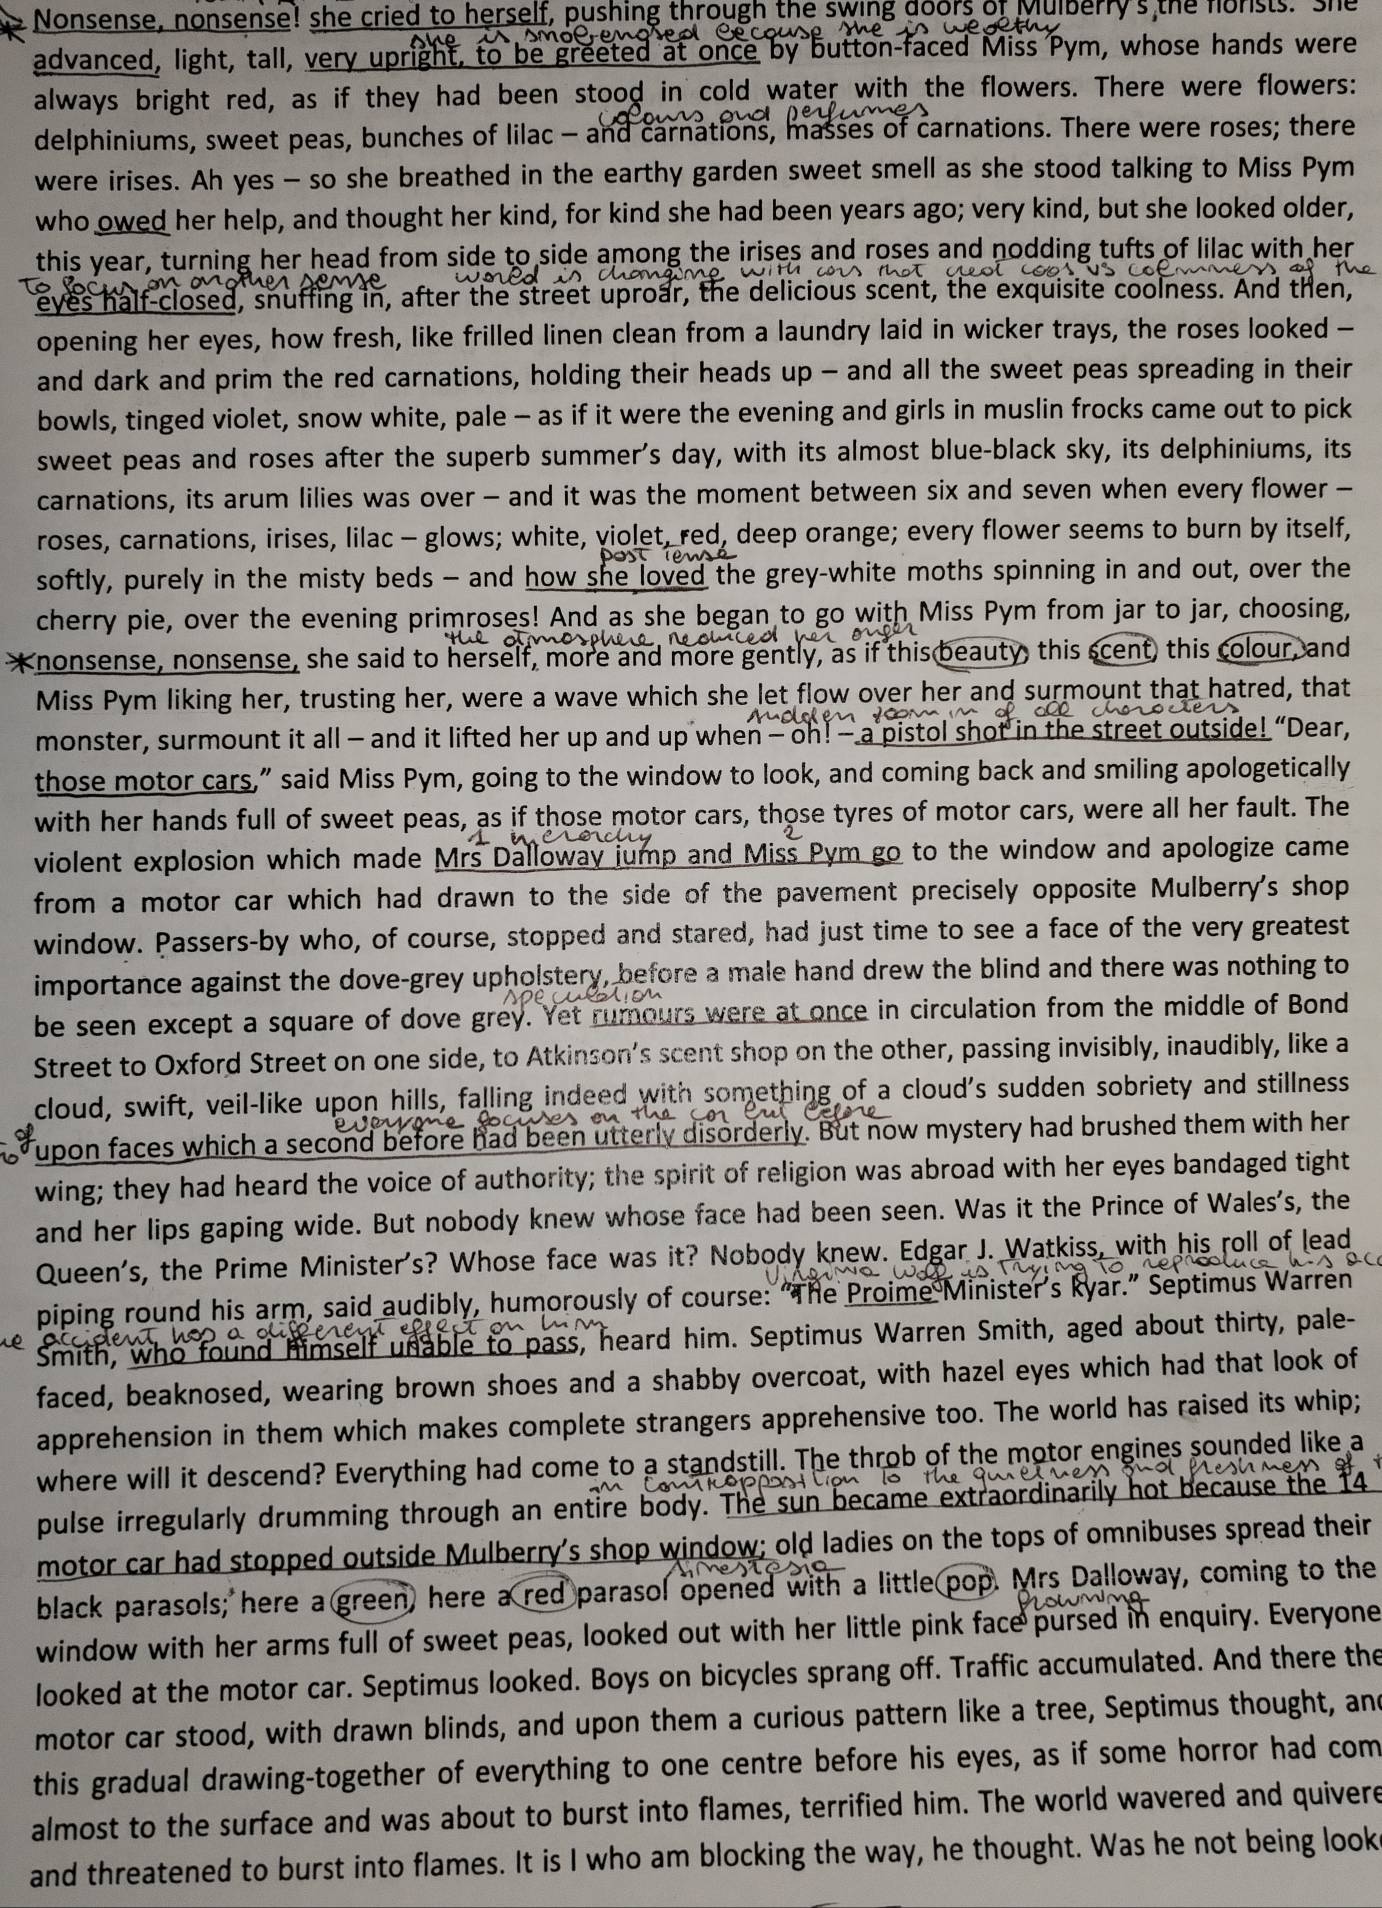 Nonsense, nonsense! she cried to herself, pushing through the swing doors of Mulberry's, the florists. She
she is because she is wealthy
advanced, light, tall, very upright, to be greeted at once by button-faced Miss Pym, whose hands were
always bright red, as if they had been stood in cold water with the flowers. There were flowers:
colours and perfumes
delphiniums, sweet peas, bunches of lilac – and carnations, masses of carnations. There were roses; there
were irises. Ah yes – so she breathed in the earthy garden sweet smell as she stood talking to Miss Pym
who owed her help, and thought her kind, for kind she had been years ago; very kind, but she looked older,
this year, turning her head from side to side among the irises and roses and nodding tufts of lilac with her
To focus on another sense world is changing with cars vs calmness of the
eyes half-closed, snuffing in, after the street uproar, the delicious scent, the exquisite coolness. And then,
opening her eyes, how fresh, like frilled linen clean from a laundry laid in wicker trays, the roses looked –
and dark and prim the red carnations, holding their heads up – and all the sweet peas spreading in their
bowls, tinged violet, snow white, pale – as if it were the evening and girls in muslin frocks came out to pick
sweet peas and roses after the superb summer's day, with its almost blue-black sky, its delphiniums, its
carnations, its arum lilies was over – and it was the moment between six and seven when every flower –
roses, carnations, irises, lilac – glows; white, violet, red, deep orange; every flower seems to burn by itself,
past tense
softly, purely in the misty beds – and how she loved the grey-white moths spinning in and out, over the
cherry pie, over the evening primroses! And as she began to go with Miss Pym from jar to jar, choosing,
the atmosphere reduced her anger
nonsense, nonsense, she said to herself, more and more gently, as if this beauty, this scent, this colour, and
Miss Pym liking her, trusting her, were a wave which she let flow over her and surmount that hatred, that
sudden zoom in of all characters
monster, surmount it all – and it lifted her up and up when – oh! – a pistol shot in the street outside! "Dear,
those motor cars," said Miss Pym, going to the window to look, and coming back and smiling apologetically
with her hands full of sweet peas, as if those motor cars, those tyres of motor cars, were all her fault. The
1 hierarchy 2
violent explosion which made Mrs Dalloway jump and Miss Pym go to the window and apologize came
from a motor car which had drawn to the side of the pavement precisely opposite Mulberry's shop
window. Passers-by who, of course, stopped and stared, had just time to see a face of the very greatest
importance against the dove-grey upholstery, before a male hand drew the blind and there was nothing to
speculation
be seen except a square of dove grey. Yet rumours were at once in circulation from the middle of Bond
Street to Oxford Street on one side, to Atkinson's scent shop on the other, passing invisibly, inaudibly, like a
cloud, swift, veil-like upon hills, falling indeed with something of a cloud's sudden sobriety and stillness
everyone focuses on the car but before
upon faces which a second before had been utterly disorderly. But now mystery had brushed them with her
wing; they had heard the voice of authority; the spirit of religion was abroad with her eyes bandaged tight
and her lips gaping wide. But nobody knew whose face had been seen. Was it the Prince of Wales's, the
Queen's, the Prime Minister's? Whose face was it? Nobody knew. Edgar J. Watkiss, with his roll of lead
Virginia Wolf is trying to reproduce his acc
piping round his arm, said audibly, humorously of course: "The Proime Minister's kyar." Septimus Warren
accident has a different effect on him
Smith, who found himself unable to pass, heard him. Septimus Warren Smith, aged about thirty, pale-
faced, beaknosed, wearing brown shoes and a shabby overcoat, with hazel eyes which had that look of
apprehension in them which makes complete strangers apprehensive too. The world has raised its whip;
where will it descend? Everything had come to a standstill. The throb of the motor engines sounded like a
in contropposition to the quietness and freshness of
pulse irregularly drumming through an entire body. The sun became extraordinarily hot because the 14
motor car had stopped outside Mulberry's shop window; old ladies on the tops of omnibuses spread their
sinestesia
black parasols; here a green, here a red parasol opened with a little pop. Mrs Dalloway, coming to the
frowning
window with her arms full of sweet peas, looked out with her little pink face pursed in enquiry. Everyone
looked at the motor car. Septimus looked. Boys on bicycles sprang off. Traffic accumulated. And there the
motor car stood, with drawn blinds, and upon them a curious pattern like a tree, Septimus thought, and
this gradual drawing-together of everything to one centre before his eyes, as if some horror had com
almost to the surface and was about to burst into flames, terrified him. The world wavered and quivere
and threatened to burst into flames. It is I who am blocking the way, he thought. Was he not being look